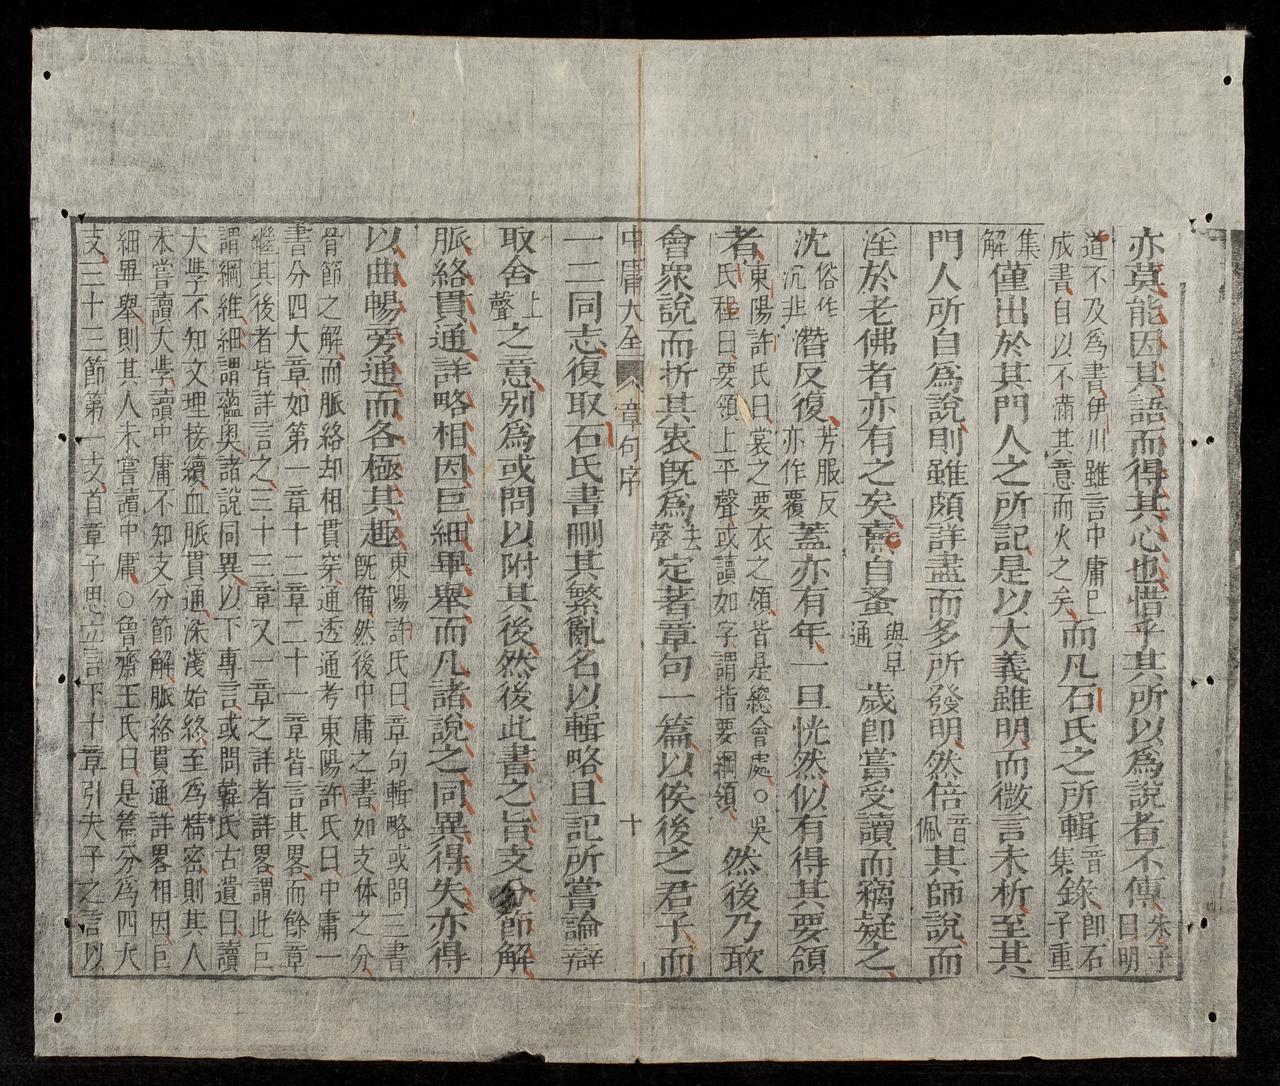 亦莫能因其語而得其心也惜乎其所以為說者不傳朱子曰明
道不及為書伊川雖言中庸已成書自以不滿其意而火之矣而凡石氏之所輯音集錄卽石子重
集解僅出於其門人之所記是以大義雖明而微言未析至其
門人所自為說則雖頗詳盡而多所發明然倍音佩其師說而
淫於老佛者亦有之矣熹自蚤與早通歲卽嘗受讀而竊疑之
沈俗作沉非潛反復芳服反亦作覆蓋亦有年一旦恍然似有得其要領
者東陽許氏曰裳之要衣之領皆是總會處○吳氏程曰要領上平聲或讀如字謂指要綱領然後乃敢
會衆說而折其衷旣為去聲定著章句一篇以俟後之君子而
中庸大全 章句序 十
一二同志復取石氏書刪其繁亂名以輯略且記所嘗論辯
取舍上聲之意別為或問以附其後然後此書之旨支分節解
脈絡貫通詳略相因巨細畢舉而凡諸說之同異得失亦得
以曲暢旁通而各極其趣東陽許氏曰章句輯略或問三書旣備然後中庸之書如支体之分
骨節之解而脈絡却相貫穿通透通考東陽許氏曰中庸一
書分四大章如第一章十二章二十一章皆言其畧而餘章
繼其後者皆詳言之三十三章又一章之詳者詳畧謂此巨
謂綱維細謂蘊奥諸說同異以下專言或問韓氏古遺曰讀
大學不知文理接續血脈貫通深淺始終至為精密則其人
未嘗讀大學讀中庸不知支分節解脈絡貫通詳畧相因巨
細畢舉則其人未嘗讀中庸○魯齋王氏曰是篇分為四大
支三十三節第一支首章子思立言下十章引夫子之言以